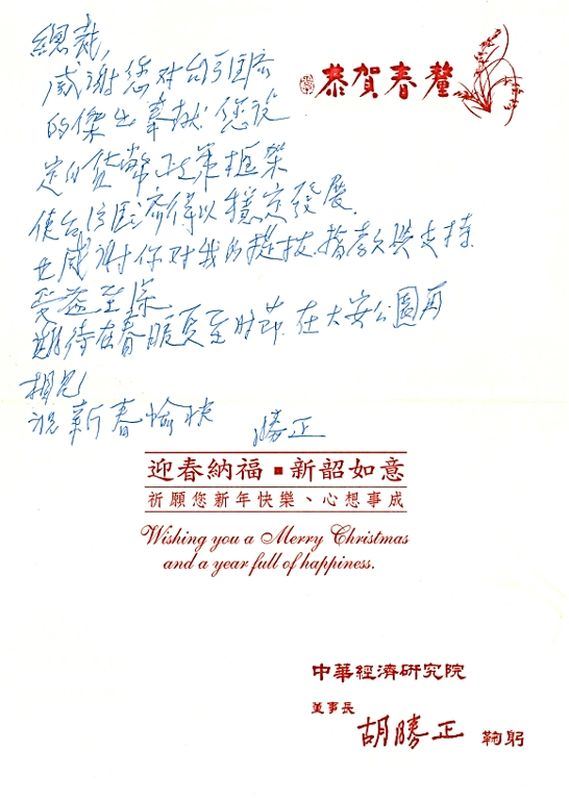 總裁,
感謝您對台灣國家
的傑出奉獻 您設
定的貨幣政策框架
使台灣經濟得以穩定發展.
也感謝你對我的提拔.指教與支持.
受益至深
期待在春暖夏至時節.在大安公園再
相見
祝新春愉快
勝正
恭賀春釐
迎春納福▪新韶如意
祈願您新年快樂、心想事成
Wishing you a Merry Christmas
and a year full of happiness.
中華經濟研究院
董事長
胡勝正 鞠躬